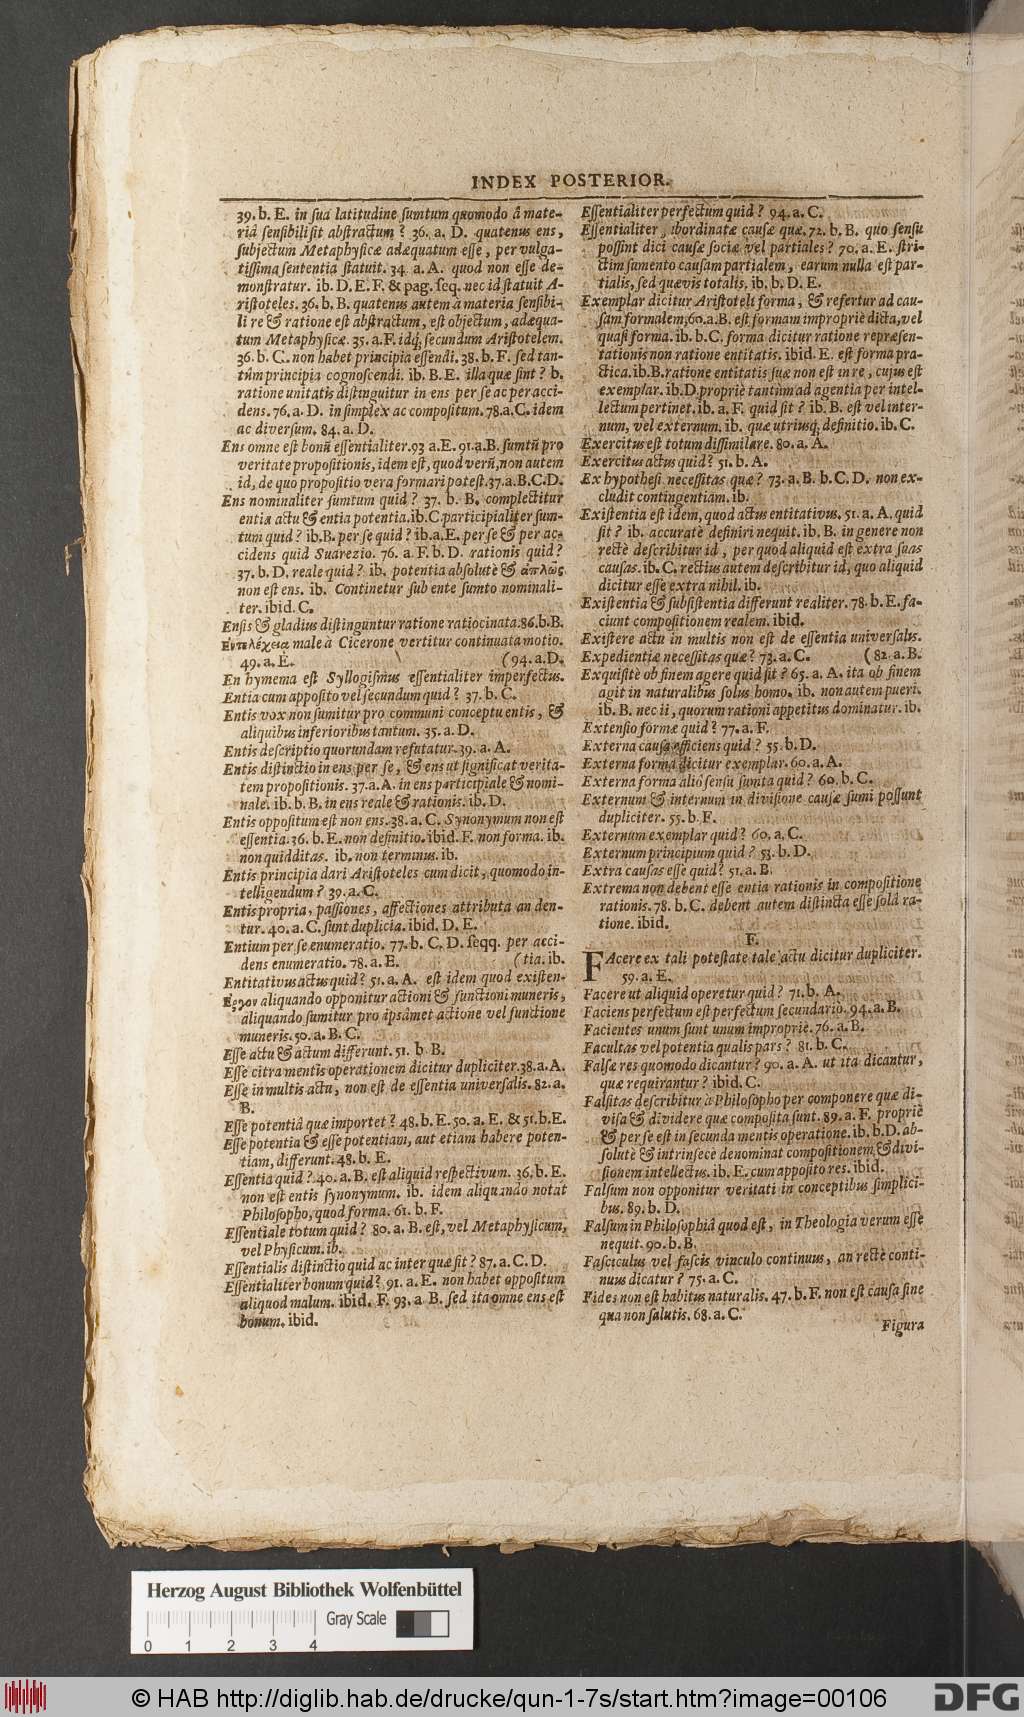 INDEX POSTERIOR.
39. b. E. in sua latitudine sumtum quomodo â mate-
riâ sensibili sit abstractum? 36. a. D. quatenus ens,
subjectum Metaphysicæ adæquatum esse, per vulga-
tissima sententia statuit. 34. a. A. quod non esse de-
monstratur. ib. D. E. F. & pag. seq. nec id statuit A-
ristoteles. 36. b. B. quatenus autem à materia sensibi-
li re & ratione est abstractum, est objectum, adæqua-
tum Metaphysicæ. 35. a. F. idq́; secundum Aristotelem.
36. b. C. non habet principia essendi. 38. b. F. sed tan-
tùm principia cognoscendi. ib. B. E. illa quæ sint? b.
ratione unitatis distinguitur in ens per se ac per acci-
dens. 76. a. D. in simplex ac compositum. 78. a. C. idem
ac diversum. 84. a. D.
Ens omne est bonũ essentialiter. 93 a. E. 91. a. B. sumtũ pro
veritate propositionis, idem est, quod verũ, non autem
id, de quo propositio vera formari potest. 37. a. B. C. D.
Ens nominaliter sumtum quid? 37. b. B. complectitur
entia actu & entia potentia. ib. C. participialiter sum-
tum quid? ib. B. per se quid? ib. a. E. per se & per ac-
cidens quid Suarezio. 76. a. F. b. D. rationis quid?
37. b. D. reale quid? ib. potentia absolutè & ἁπλῶς
non est ens. ib. Continetur sub ente sumto nominali-
ter. ibid. C.
Ensis & gladius distinguntur ratione ratiocinata. 86. b. B.
Ἐντελέχεια male à Cicerone vertitur continuata motio.
49. a. E. (94. a. D.
En hymema est Syllogismus essentialiter imperfectus.
Entia cum apposito vel secundum quid? 37. b. C.
Entis vox non sumitur pro communi conceptu entis, &
aliquibus inferioribus tantum. 35. a. D.
Entis descriptio quorundam refutatur. 39. a. A.
Entis distinctio in ens per se, & ens ut significat verita-
tem propositionis. 37. a. A. in ens participiale & nomi-
nale. ib. b. B. in ens reale & rationis. ib. D.
Entis oppositum est non ens. 38. a. C. Synonymum non est
essentia. 36. b. E. non definitio. ibid. F. non forma. ib.
non quidditas. ib. non terminus. ib.
Entis principia dari Aristoteles cum dicit, quomodo in-
telligendum? 39. a. C.
Entis propria, passiones, affectiones attributa an den-
tur. 40. a. C. sunt duplicia. ibid. D. E.
Entium per se enumeratio. 77. b. C. D. seqq. per acci-
dens enumeratio. 78. a. E. (tia. ib.
Entitativus actus quid? 51. a. A. est idem quod existen-
Ἔργον aliquando opponitur actioni & functioni muneris,
aliquando sumitur pro ipsamet actione vel functione
muneris. 50. a. B. C.
Esse actu & actum differunt. 51. b. B.
Esse citra mentis operationem dicitur dupliciter. 38. a. A.
Esse in multis actu, non est de essentia universalis. 82. a.
B.
Esse potentiâ quæ importet? 48. b. E. 50. a. E. & 51. b. E.
Esse potentia & esse potentiam, aut etiam habere poten-
tiam, differunt. 48. b. E.
Essentia quid? 40. a. B. est aliquid respectivum. 36. b. E.
non est entis synonymum. ib. idem aliquando notat
Philosopho, quod forma. 61. b. F.
Essentiale totum quid? 80. a. B. est, vel Metaphysicum,
vel Physicum. ib.
Essentialis distinctio quid ac inter quæ sit? 87. a. C. D.
Essentialiter bonum quid? 91. a. E. non habet oppositum
aliquod malum. ibid. F. 93. a B. sed ita omne ens est
bonum. ibid.
Essentialiter perfectum quid? 94. a. C.
Essentialiter ubordinatæ causæ quæ. 72. b. B. quo sensu
possint dici causæ sociæ vel partiales? 70. a. E. stri-
ctim sumento causam partialem, earum nulla est par-
tialis, sed quævis totalis. ib. b. D. E.
Exemplar dicitur Aristoteli forma, & refertur ad cau-
sam formalem, 60. a. B. est formam impropriè dicta, vel
quasi forma. ib. b. C. forma dicitur ratione repræsen-
tationis non ratione entitatis. ibid. E. est forma pra-
ctica. ib. B. ratione entitatis suæ non est in re, cujus est
exemplar. ib. D. propriè tantùm ad agentia per intel-
lectum pertinet. ib. a. F. quid sit? ib. B. est vel inter-
num, vel externum. ib. quæ utriusq́; definitio. ib. C.
Exercitus est totum dissimilare. 80. a. A.
Exercitus actus quid? 51. b. A.
Ex hypothesi necessitas quæ? 73. a. B. b. C. D. non ex-
cludit contingentiam. ib.
Existentia est idem, quod actus entitativus. 51. a. A. quid
sit? ib. accuratè definiri nequit. ib. B. in genere non
rectè describitur id, per quod aliquid est extra suas
causas. ib. C. rectius autem describitur id, quo aliquid
dicitur esse extra nihil. ib.
Existentia & subsistentia differunt realiter. 78. b. E. fa-
ciunt compositionem realem. ibid.
Existere actu in multis non est de essentia universalis.
Expedientiæ necessitas quæ? 73. a. C. (82. a. B.
Exquisitè ob finem agere quid sit? 65. a. A. ita ob finem
agit in naturalibus solus homo. ib. non autem pueri.
ib. B. nec ii, quorum rationi appetitus dominatur. ib.
Extensio formæ quid? 77. a. F.
Externa causa efficiens quid? 55. b. D.
Externa forma dicitur exemplar. 60. a. A.
Externa forma alio sensu sumta quid? 60. b. C.
Externum & internum in divisione causæ sumi possunt
dupliciter. 55. b. F.
Externum exemplar quid? 60. a. C.
Externum principium quid? 53. b. D.
Extra causas esse quid? 51. a. B.
Extrema non debent esse entia rationis in compositione
rationis. 78. b. C. debent autem distincta esse solâ ra-
tione. ibid.
F.
FAcere ex tali potestate tale actu dicitur dupliciter.
59. a. E.
Facere ut aliquid operetur quid? 71. b. A.
Faciens perfectum est perfectum secundariò. 94. a. B.
Facientes unum sunt unum impropriè. 76. a. B.
Facultas vel potentia qualis pars? 81. b. C.
Falsæ res quomodo dicantur? 90. a. A. ut ita dicantur,
quæ requirantur? ibid. C.
Falsitas describitur à Philosopho per componere quæ di-
visa & dividere quæ composita sunt. 89. a. F. propriè
& per se est in secunda mentis operatione. ib. b. D. ab-
solutè & intrinsecè denominat compositionem, & divi-
sionem intellectus. ib. E. cum apposito res. ibid.
Falsum non opponitur veritati in conceptibus simplici-
bus. 89. b. D.
Falsum in Philosophiâ quod est, in Theologia verum esse
nequit. 90. b. B.
Fasciculus vel fascis vinculo continuus, an rectè conti-
nuus dicatur? 75. a. C.
Fides non est habitus naturalis. 47. b. F. non est causa sine
qua non salutis. 68. a. C.
Figura
Herzog August Bibliothek Wolfenbüttel
Gray Scale
0 1 2 3 4
© HAB http://diglib.hab.de/drucke/qun-1-7s/start.htm?image=00106
DFG